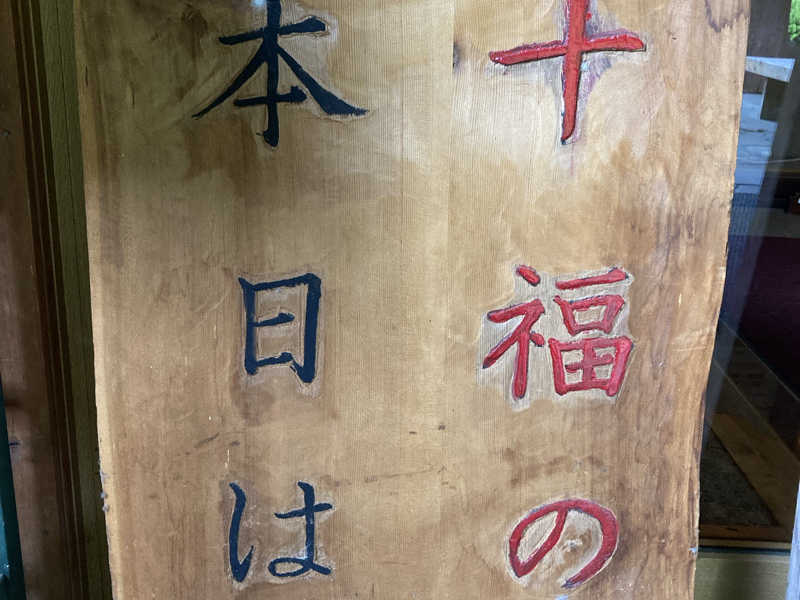 十福の
本日は